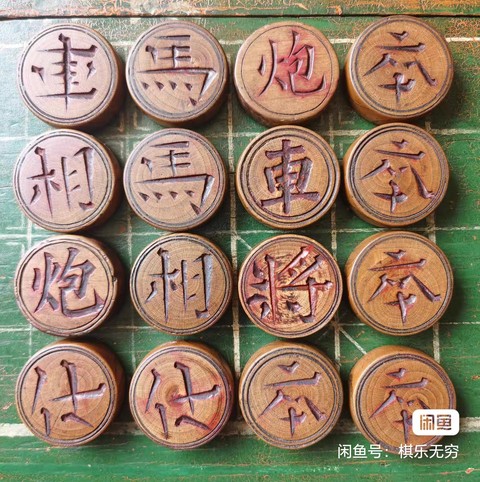 車 馬 炮 卒
相 馬 車 卒
炮 相 將 卒
仕 仕 卒 卒
闲鱼
闲鱼号：棋乐无穷